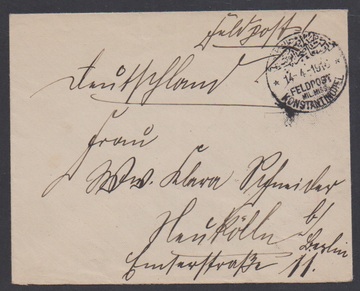 Feldpost!
14-4-1916
FELDPOST
MIL. MISS.
KONSTANTINOPEL
Deutschland
Frau
Ww. Klara Schneider
Neukölln b/
Berlin
Emserstraße 11.